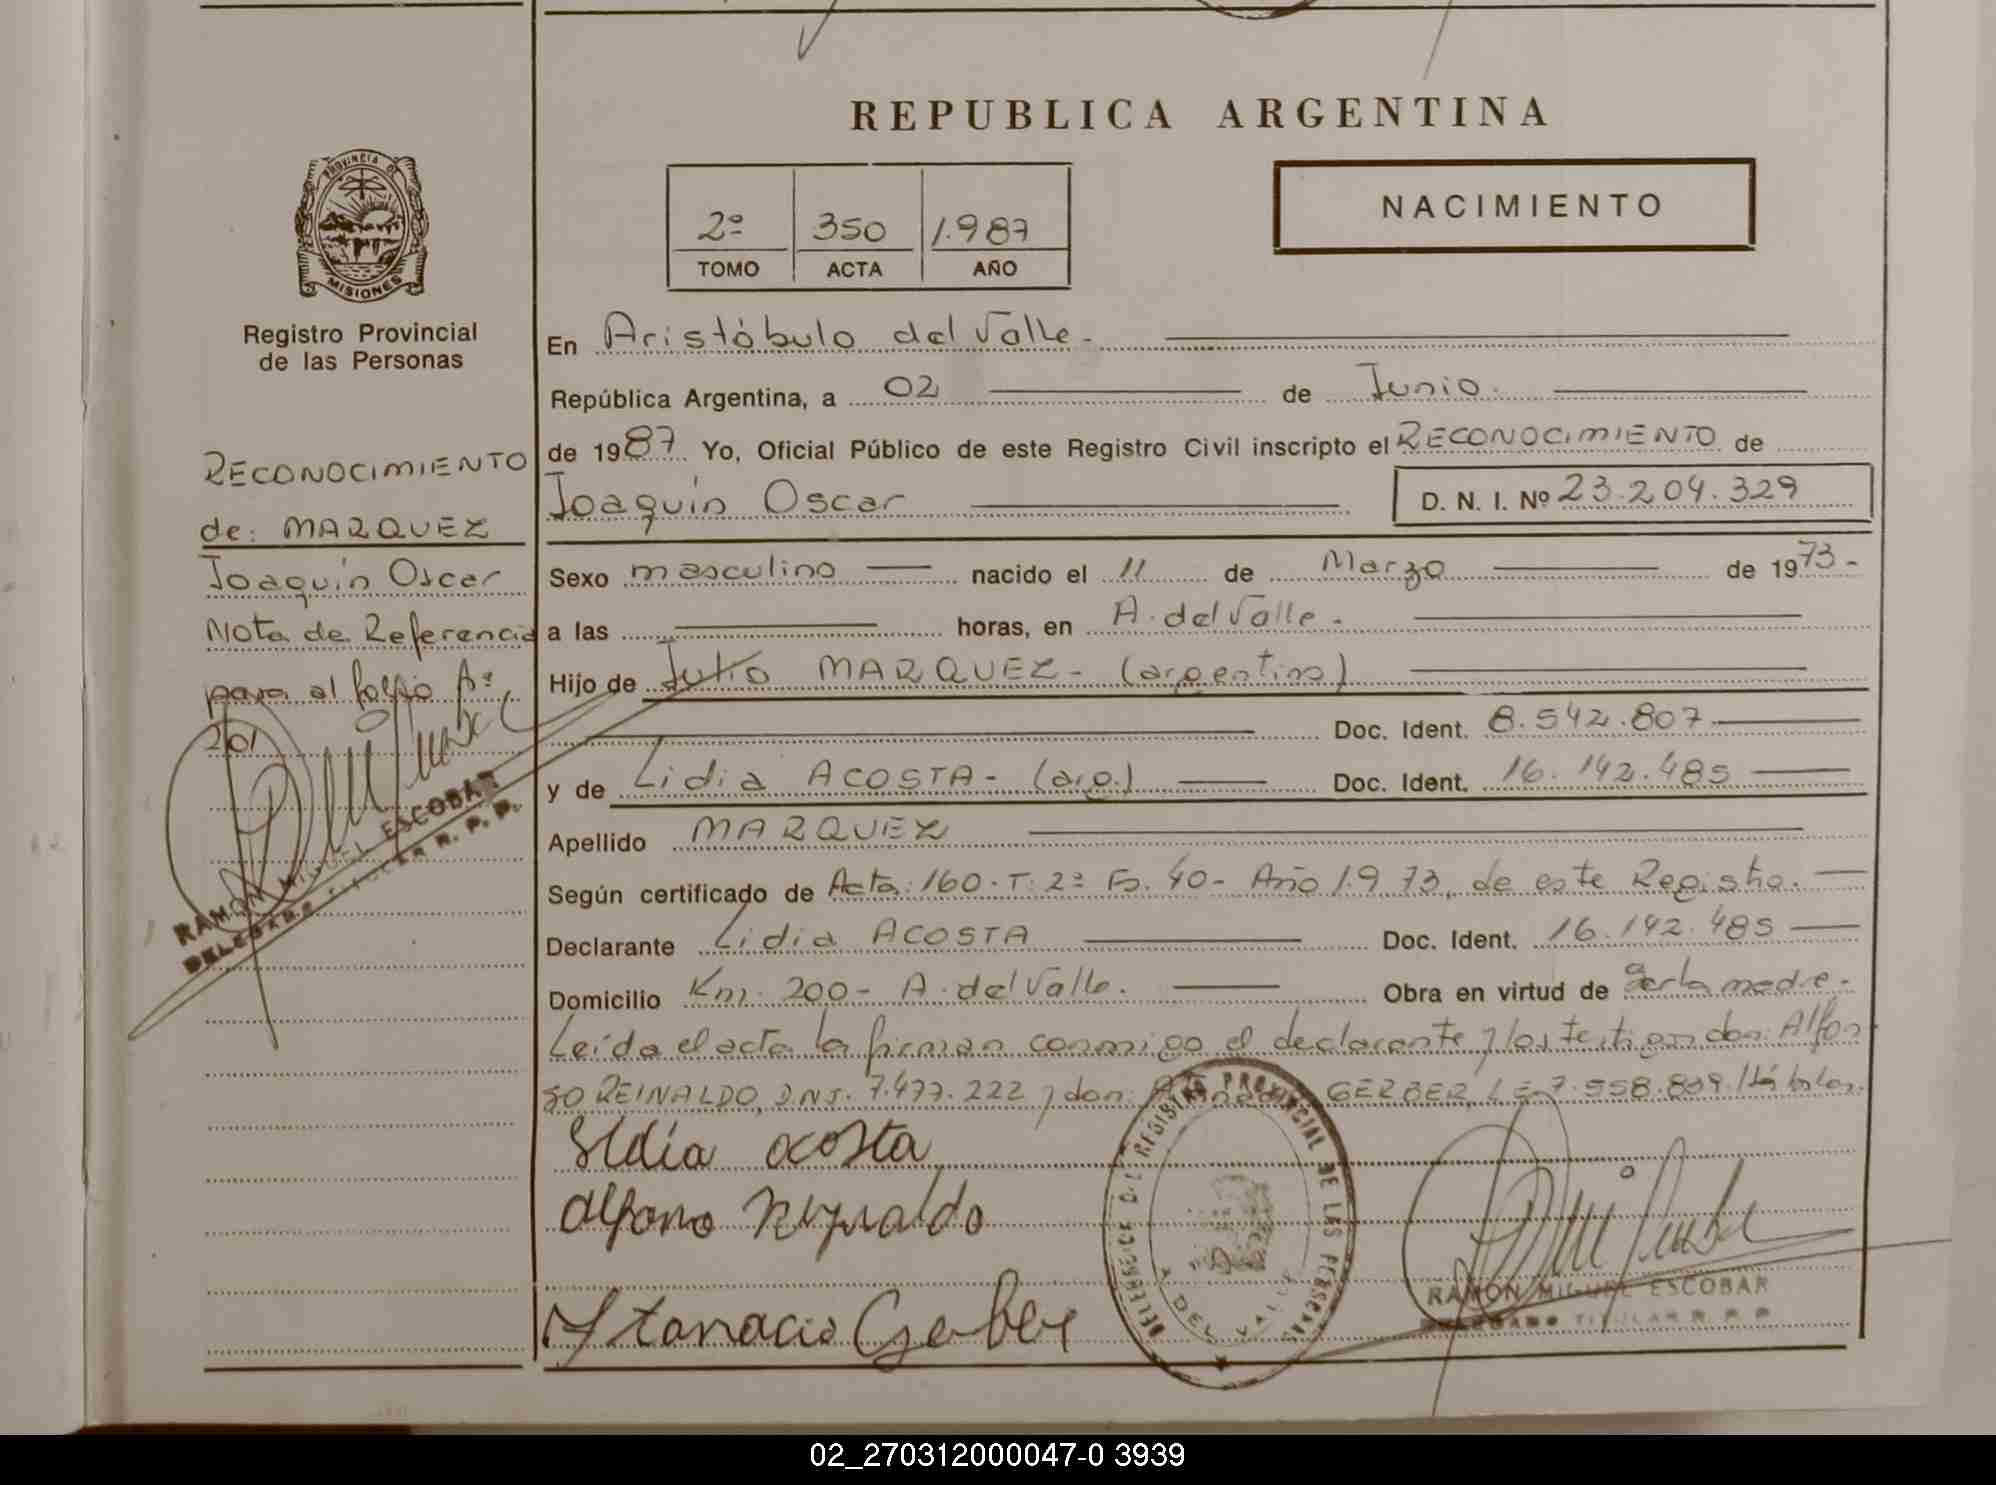 REPUBLICA ARGENTINA
PROVINCIA DE
MISIONES
Registro Provincial
de las Personas
2º 350 1.987
TOMO ACTA AÑO
NACIMIENTO
En Aristóbulo del Valle.-
República Argentina, a 02 de Junio.
de 1987. Yo, Oficial Público de este Registro Civil inscripto el RECONOCIMIENTO de
Joaquín Oscar D. N. I. Nº 23.204.329
Sexo masculino nacido el 11 de Marzo de 1973-
a las horas, en A. del Valle.-
Hijo de Julio MARQUEZ- (argentino)
Doc. Ident. 8.542.807
y de Lidia ACOSTA- (arg.) Doc. Ident. 16.142.485
Apellido MARQUEZ
Según certificado de Acta: 160. T. 2º Fo. 40- Año 1.973, de este Registro.
Declarante Lidia ACOSTA Doc. Ident. 16.142.485
Domicilio Km. 200- A. del Valle. Obra en virtud de ser la madre.-
Leída el acta la firman conmigo el declarante y los testigos don: Alfon-
so REINALDO, DNI. 7.477.222 y don: GERBER, LE. 7.558.809.
RECONOCIMIENTO
de: MARQUEZ
Joaquín Oscar
Nota de Referencia
para al folio Aº
201
RAMON MIGUEL ESCOBAR
DELEGADO TITULAR R. P. P.
lidia acosta
Alfonso Reynaldo
Atanacio Gerber
DELEGACION DEL REGISTRO PROVINCIAL DE LAS PERSONAS
A. DEL VALLE
RAMON MIGUEL ESCOBAR
DELEGADO TITULAR R. P. P.
02_270312000047-0 3939